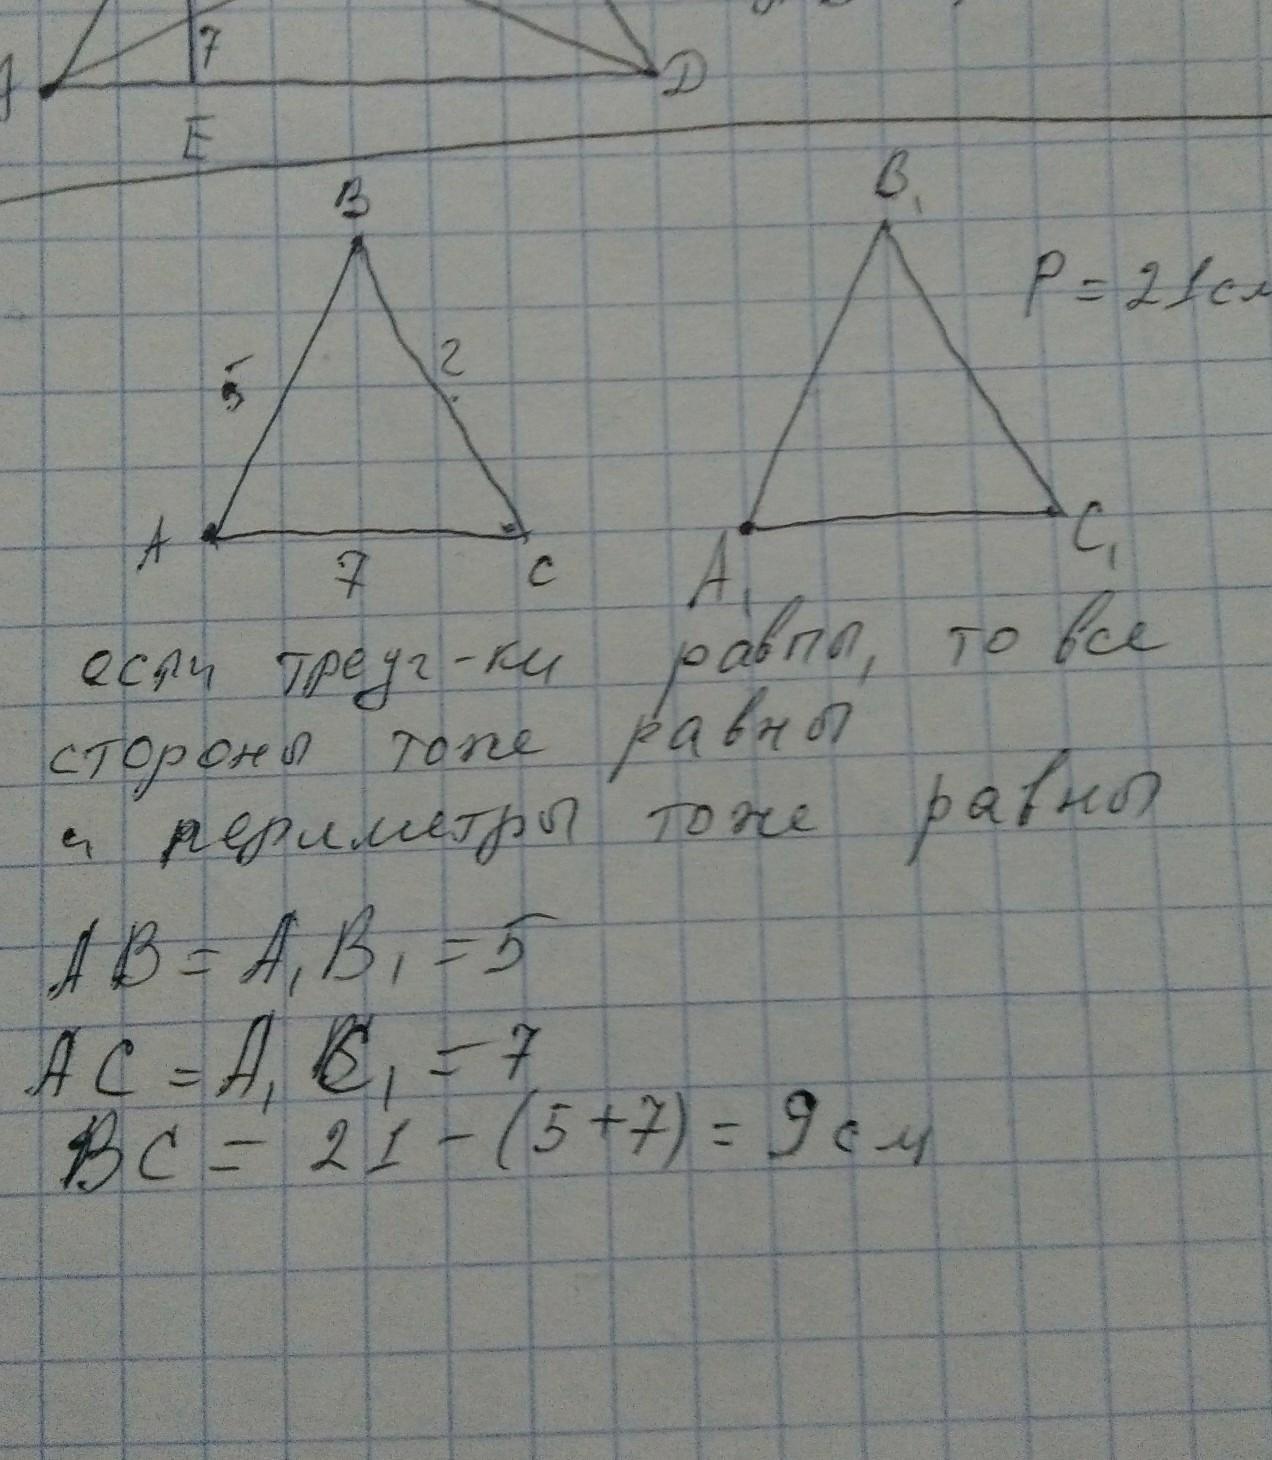 7
D
E
B
B₁
P = 21см
5
?
A
7
C
A₁
C₁
если треуг-ки равны, то все
стороны тоже равны
и периметры тоже равны
AB = A₁B₁ = 5
AC = A₁C₁ = 7
BC = 21 - (5+7) = 9см